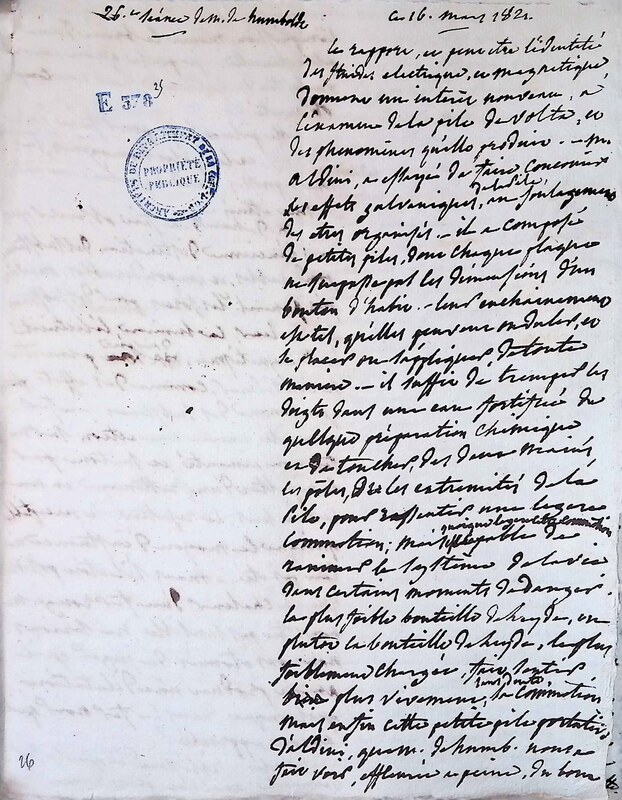 26.e séance de m. de humboldt ce 16. mars 1821.
le rapport, et peut etre l'identité
des fluides electrique, et magnetique
donnent un interêt nouveau, à
l'examen de la pile de volta, et
des phenomènes qu'elle produit. - m.
aldini, a essayé de faire concourir
les effets galvaniques, de la pile, au soulagement
des etres organisés - il a composé
de petites piles, dont chaque plaque
ne surpasse pas les dimensions d'un
bouton d'habit. - leur enchainement
est tel, qu'elles peuvent onduler, et
se placer ou s'appliquer de toute
maniere. - il suffit de tremper les
doigts dans une eau fortifiée de
quelque préparation chimique
et de toucher, des deux mains
les pôles, les extremités de la
pile, pour ressentir une legere
commotion, mais capable de
quoique legere cette commotion
ranimer le systême de la vie
dans certains moments de danger.
la plus foible bouteille de leyde, ou
plutot la bouteille de leyde, la plus
foiblement chargée, fait sentir
bien plus vivement, sans doute, la commotion
mais enfin cette petite pile portative
d'aldini, que m. de humb. nous a
fait voir, effleurée a peine, du bout
E 378
25
ARCHIVES DU DEPARTEMENT DE LA
PROPRIÉTÉ
PUBLIQUE
26